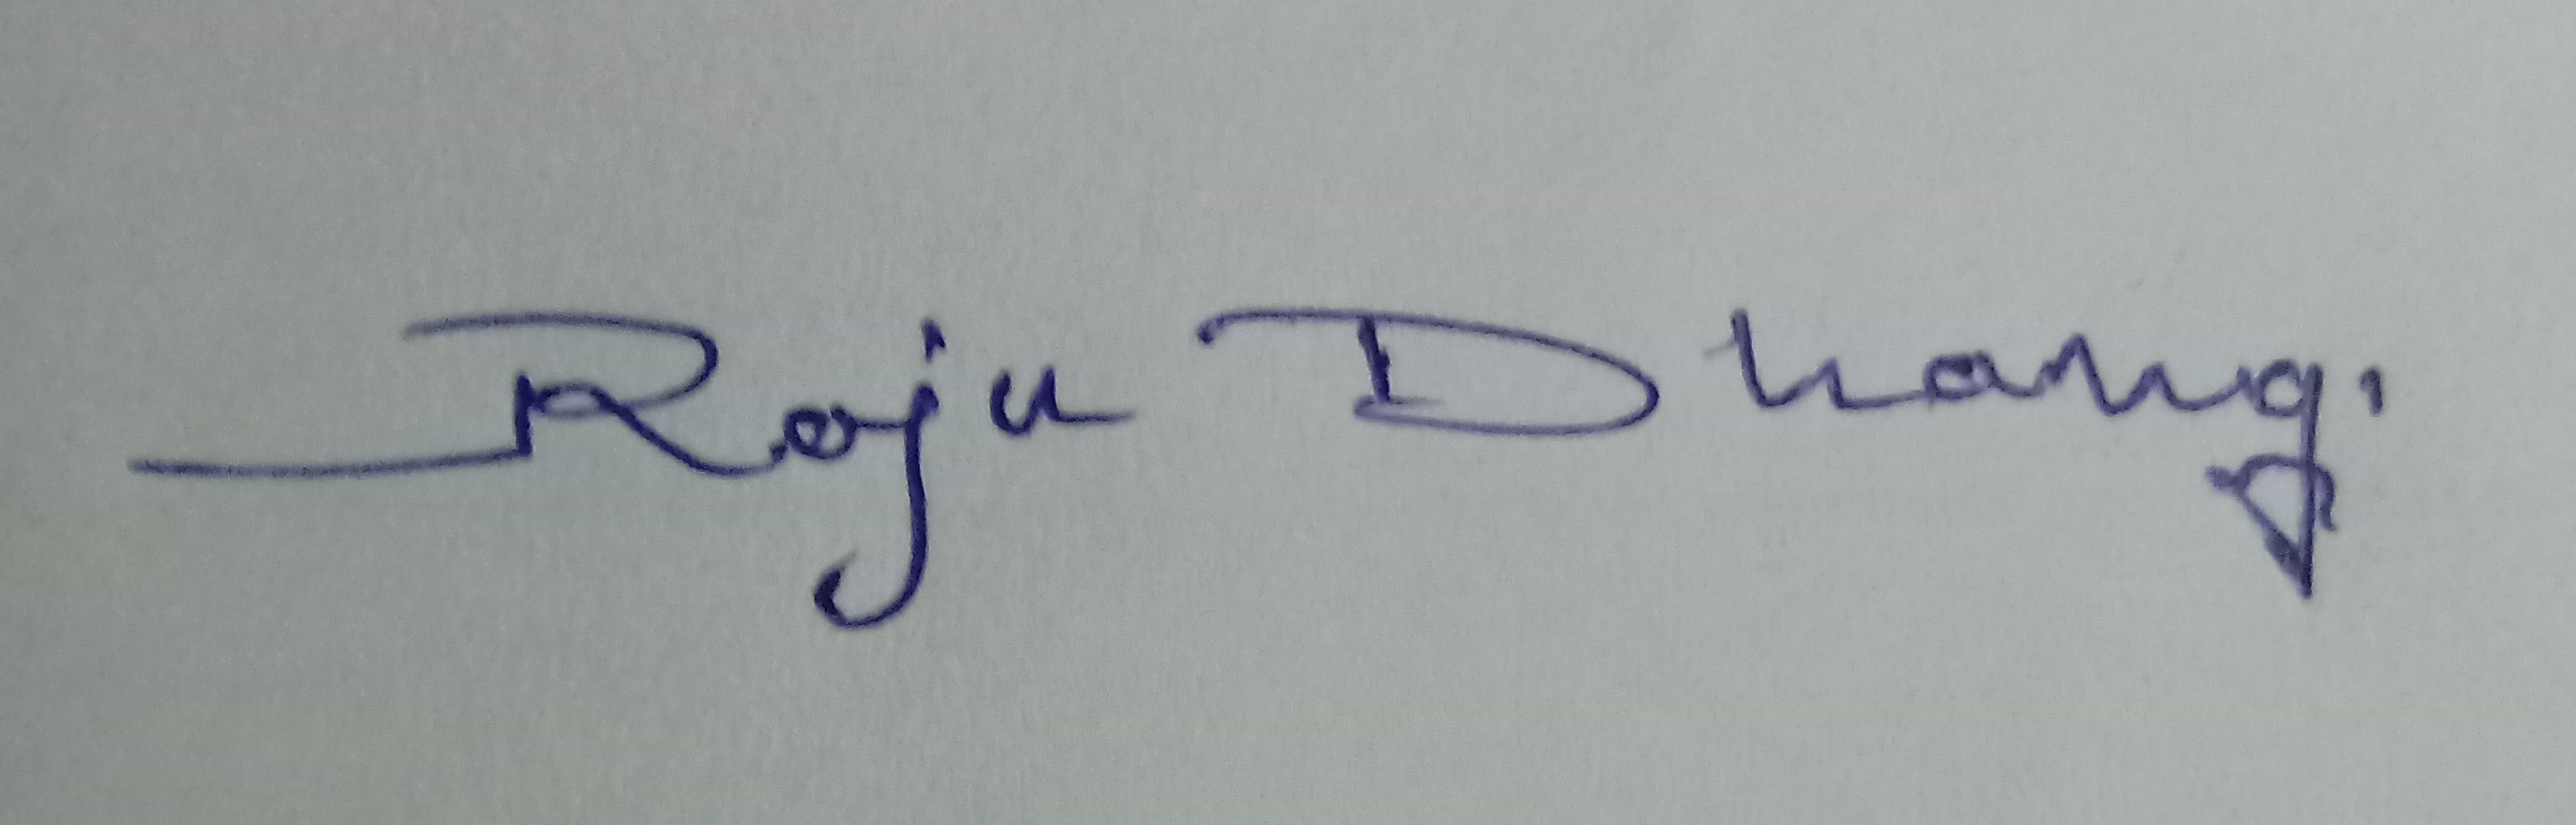 Raju Dhang.